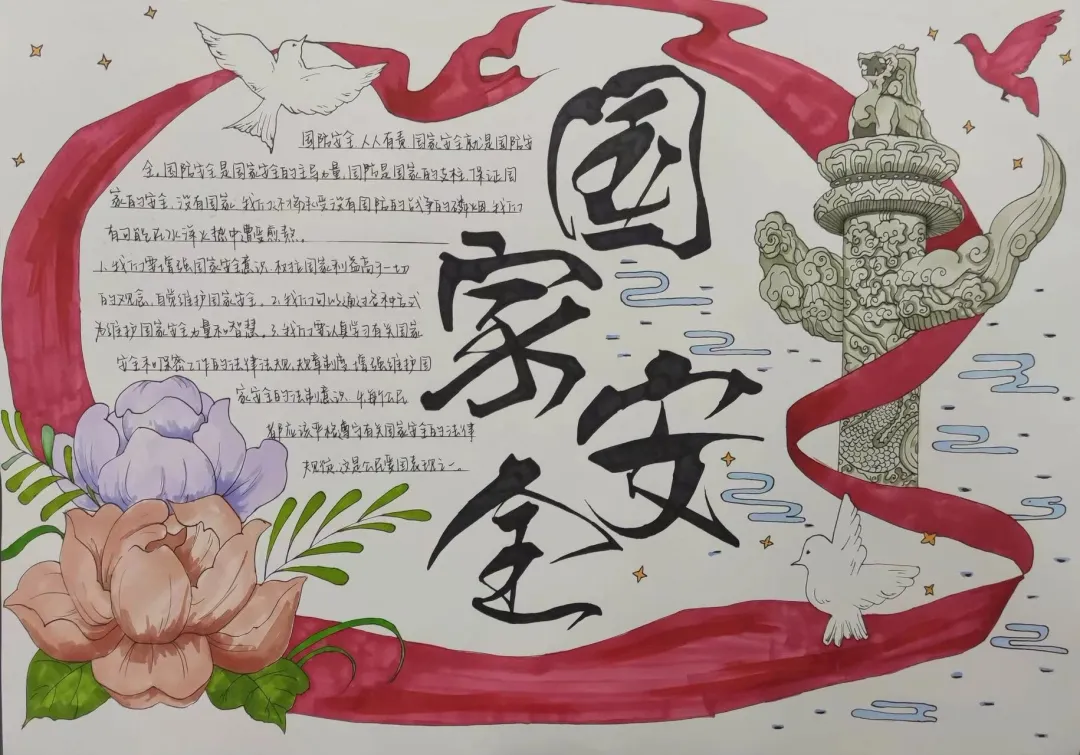 国家安全
国防安全,人人有责,国家安全就是国防安
全,国防安全是国家安全的主导力量,国防是国家的支柱,保证国
家的安全,没有国家,我们不得承受没有国防的战争的硝烟,我们
有可能在水深火热中遭受煎熬。
1.我们要增强国家安全意识,树立国家利益高于一切
的观念,自觉维护国家安全。2.我们可以通过各种方式
为维护国家安全力量和智慧。3.我们要认真学习有关国家
安全和保密工作的法律法规、规章制度,增强维护国
家安全的法制意识。4.每个公民
都应该严格遵守有关国家安全的法律
规范,这是公民爱国表现之一。